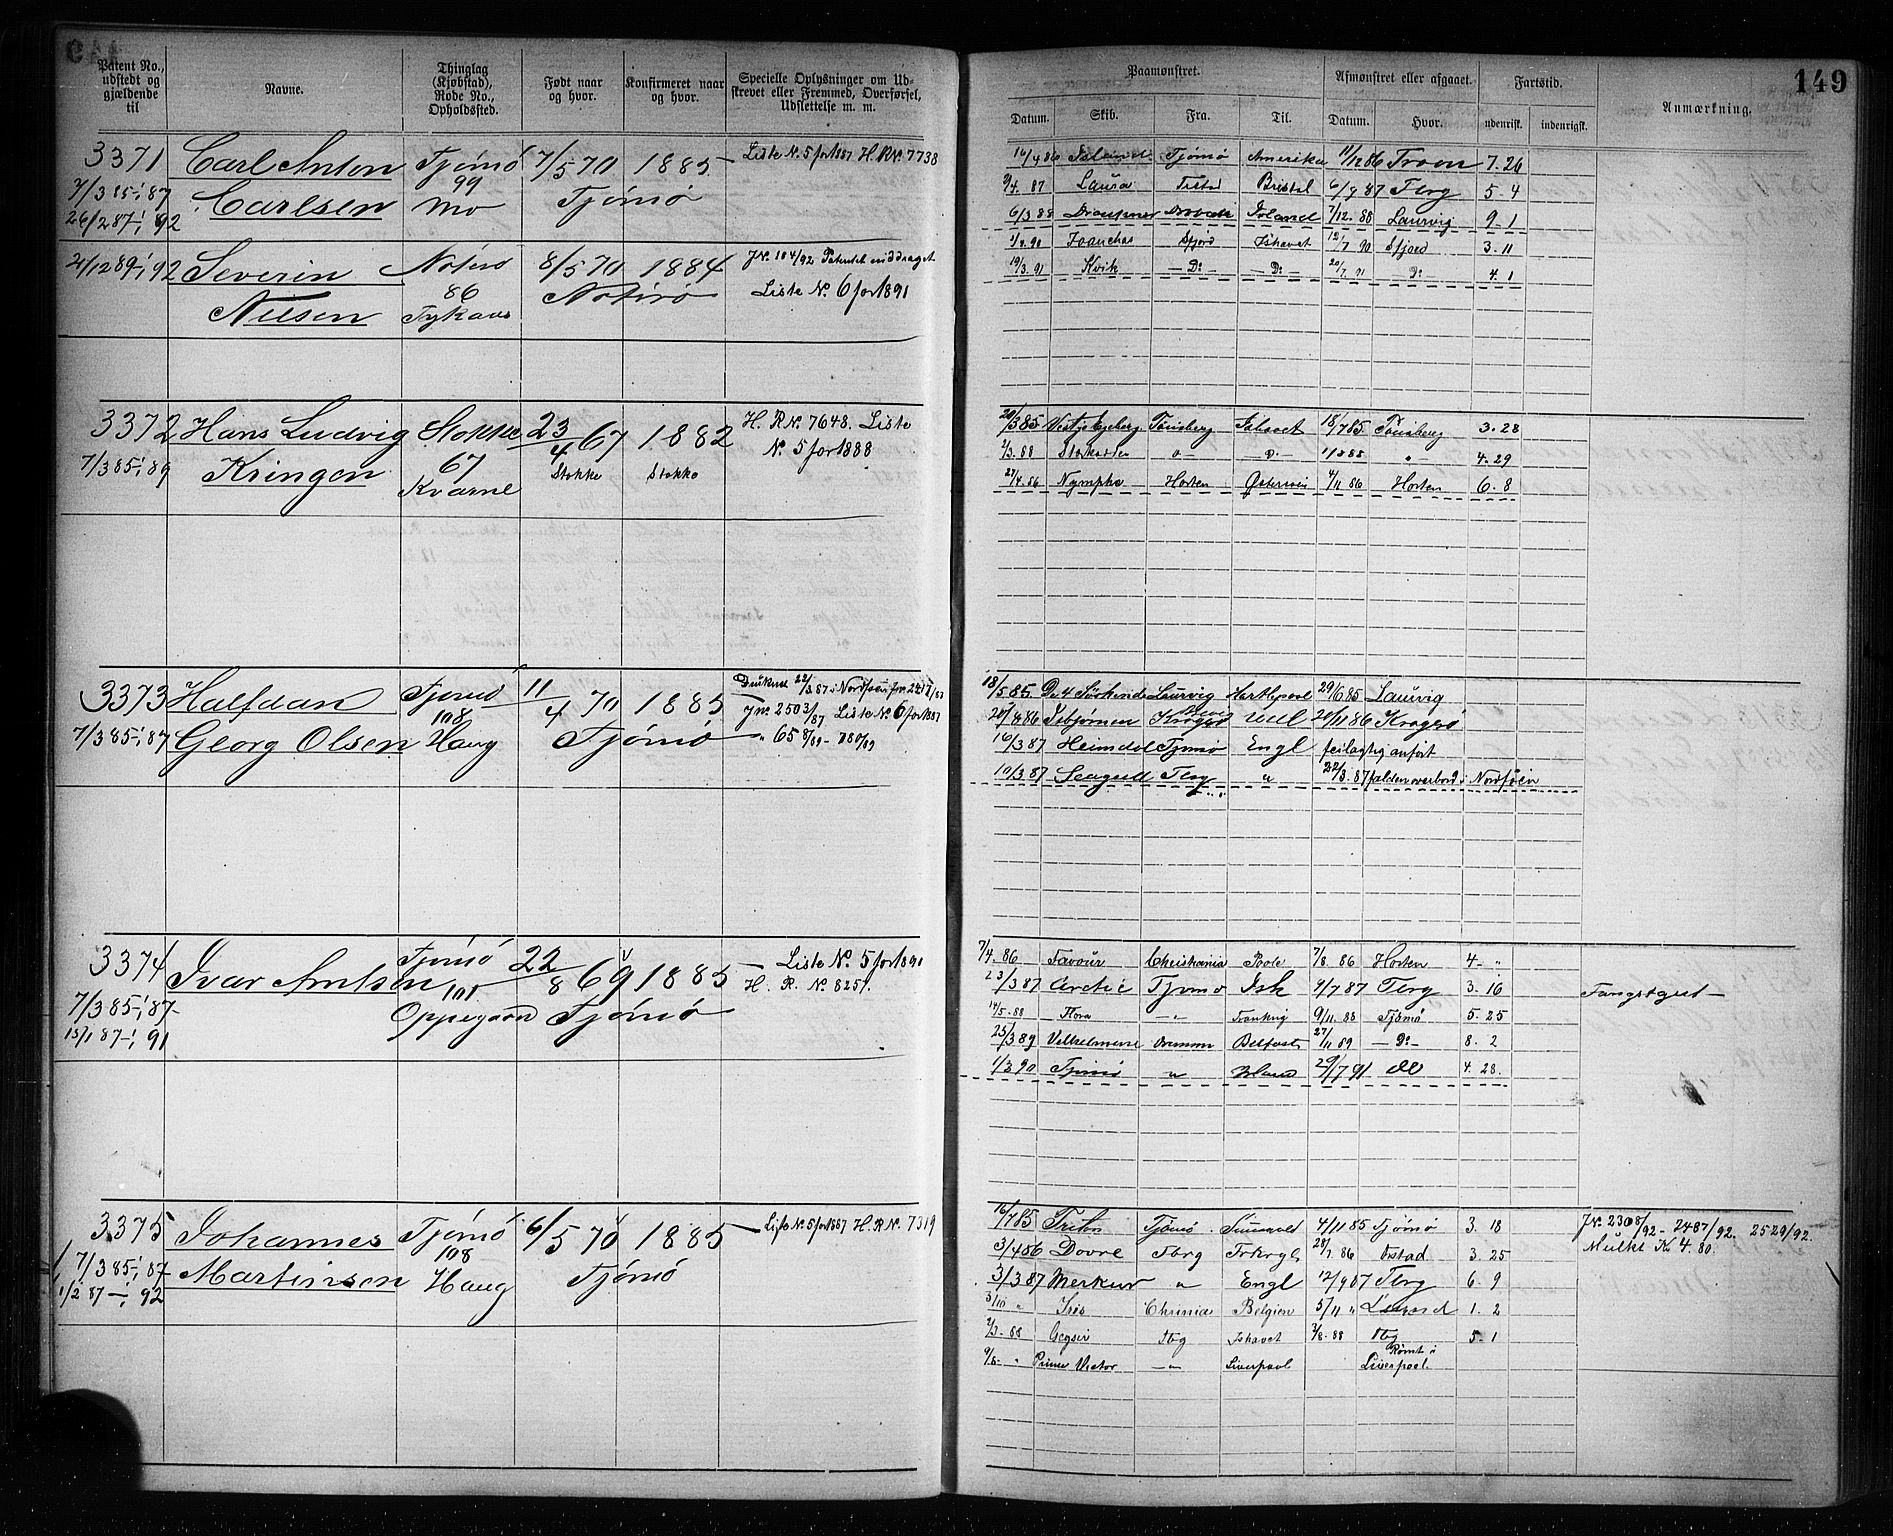 149
Patent No., udstedt og gjældende til
Navne.
Thinglag (Kjøbstad), Rode No., Opholdssted.
Født naar og hvor.
Konfirmeret naar og hvor.
Specielle Oplysninger om Udskrevet eller Fremmed, Overførsel, Udslettelse m. m.
Paamønstret.
Afmønstret eller afgaaet.
Fartstid.
Anmærkning.
Datum. Skib. Fra. Til. Datum. Hvor. udenrigsk. indenrigsk.
3371 Carl Anton Tjømø 7/5 70 1885 Liste No. 5 for 1887 H. R No. 7738
7/3 85 -i 87 Carlsen 99 Tjømø
26/2 87 -i 92 Mo
21/12 89 -i 92 Severin Nøterø 8/5 70 1884 J No. 104/92 Patentet inddraget
Nilsen 86 Nøterø Liste No. 6 for 1891
Island Tjømø Amerika 11/12 86 Troon 7. 26
87 Laura Bristol 6/9 87 Tbrg 5 - 4
6/3 88 Draupner Island 7/12 88 Laurvig 9. 1
90 Sfjord Ishavet 90 Sfjord 3. 11
19/3. 91 Kvik — Do — — Do — 20/7. 91 — Do — 4. 1
3372 Hans Ludvig Stokke 23/4 67 1882 H. R No. 7648. Liste
7/3 85 -i 89 Kringen 67 Stokke Stokke No. 5 for 1888
Kværne
20/3 85 Tønsberg Ishavet 18/7 85 Tønsberg 3. 28
2/3. 88 4. 29
27/4. 86 Nymphe Horten 4/11 86 Horten 6. 8
3373 Halfdan Tjømø 11/4 70 1885 Druknet 22/3 87 i Nordsøen
7/3 85 -i 87 Georg Olsen 108 Tjømø Liste No. 6 for 1887
Haug
18/5 85. De 4 Laurvig Hartlpool 29/6 85 Laurvig
Isbjørnen Kragerø 20/11 86 Kragerø
16/3 87 Heimdal Tjømø Engl feilagtig anført
10/3 87 Seagull Tbrg " 22/3. 87 falden overbord i Nordsøen
3374 Ivar Antsen Tjømø 22/8 69 1885 Liste No. 5 for 1891
7/3 85 -i 87 101 Tjømø H. R. No. 8251.
15/1 87 -i 91 Oppegaard
7/4. 86 Favour Christiania 7/8. 86 Horten 4 - "
23/3 87 Arctic Tjømø Ish 9/7 87 Tbrg 3. 16 Fangstgut
14/5 - 88 Flora — " 9/11. 88 Tjømø 5. 25
25/3 89 Vilhelmine Drammen Belfast 27/11 89 — Do — 8. 2
1/3 90 Tjømø " 29/7 91 do 4. 28.
3375 Johannes Tjømø 6/5 70 1885 Liste No. 5 for 1887 H. R No. 7319
7/3 85 -i 87 Martinsen 108 Tjømø
1/2 87 -i 92 Haug
16/7 85 Triton Tjømø 4/11 85 Tjømø 3. 18 J No. 2308/92 - 2487/92. 2529/92.
3/4 86 Dovre Tbrg 28/7. 86 3. 25 Mulkt Kr 4.80.
3/3 87 Merkur " Engl 12/9 87 Tbrg 6. 9
3/10 " Chrinia Belgien 5/11 " 1. 2
2/3. 88 Geyser Tbg Ishavet 3/8. 88 Tbg 5 - 1
9/8 - " Prince Victor — " Liverpool Rømt i Liverpool.